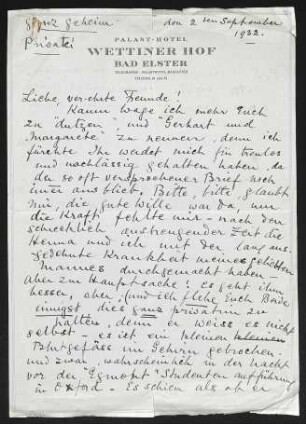 Ganz geheim
den 2ten September
1932.
Privat
PALAST-HOTEL
WETTINER HOF
BAD ELSTER
Liebe, verehrte Freunde!
Kaum wage ich mehr Euch
zu "dutzen" und "Gerhart und
Margarete" zu nennen, denn ich
fürchte Ihr werdet mich für treulos
und nachlässig gehalten haben, da
der so oft versprochener Brief noch
immer ausblieb. Bitte, bitte glaubt
mir, die gute Wille war da, nur
die Kraft fehlte mir - nach der
schrecklich anstrengender Zeit die
Herma und ich mit der lang aus-
gedehnte Krankheit meines geliebten
Mannes durchgemacht haben -
Aber zur Hauptsache! es geht ihm
besser, aber (und ich flehe Euch Beide
innigst dies ganz privatim zu
halten, denn er weiss es nicht
selbst - es ist ein kleiner
Blutgefäss im Gehirn gebrochen -
und zwar, wahrscheinlich in der Nacht
vor der "Egmont" Studentenaufführung
in Oxford. - Es schien als ob er